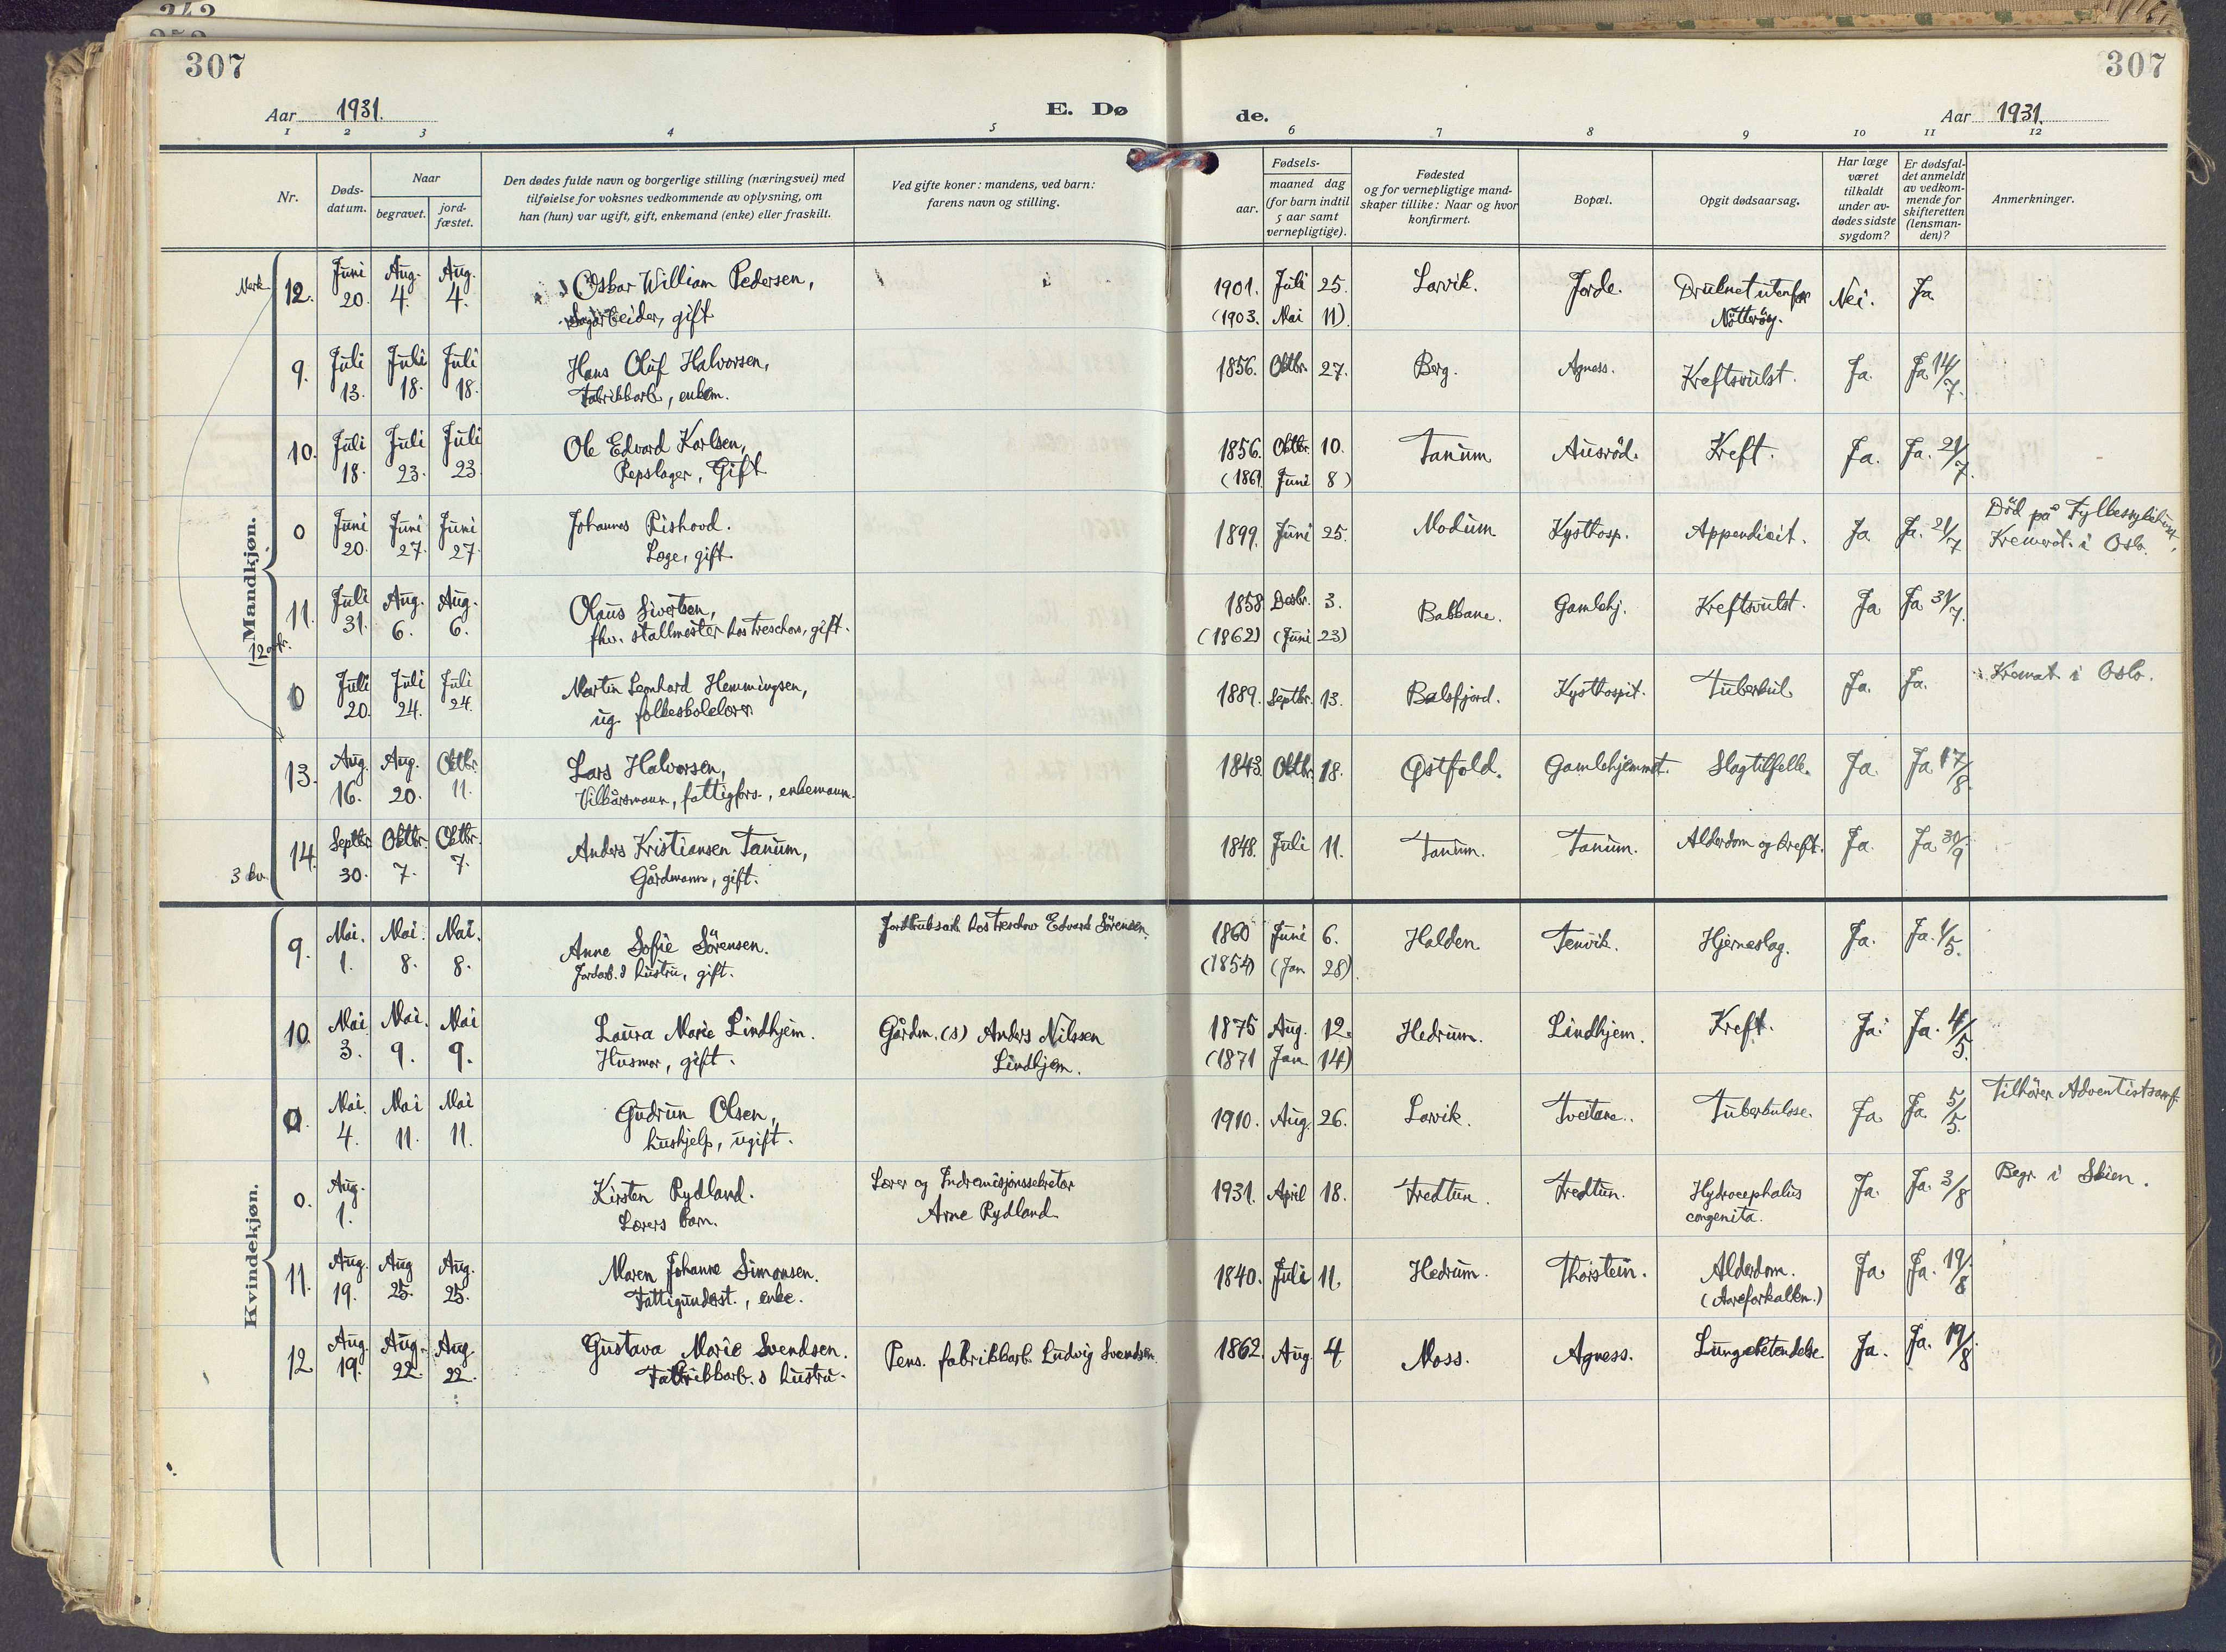 307
307
Aar 1931.
E. Dø
de.
Aar 1931.
1 2 3 4 5 6 7 8 9 10 11 12
Nr.
Døds-
datum.
Naar
begravet.
jord-
fæstet.
Den dødes fulde navn og borgerlige stilling (næringsvei) med
tilføielse for voksnes vedkommende av oplysning, om
han (hun) var ugift, gift, enkemand (enke) eller fraskilt.
Ved gifte koner: mandens, ved barn:
farens navn og stilling.
Fødsels-
aar.
maaned dag
(for barn indtil
5 aar samt
vernepligtige).
Fødested
og for vernepligtige mand-
skaper tillike: Naar og hvor
konfirmert.
Bopæl.
Opgit dødsaarsag.
Har læge
været
tilkaldt
under av-
dødes sidste
sygdom?
Er dødsfal-
det anmeldt
av vedkom-
mende for
skifteretten
(lensman-
den)?
Anmerkninger.
Mandkjøn.
Merk
12. Juni 20. Aug. 4. Aug. 4. Oskar William Pedersen, 1901. Juli 25. Larvik. Jorde. Druknet utenfor Nei. Ja.
gift (1903. Mai 11). Nøtterøy.
9. Juli 13. Juli 18. Juli 18. Hans Oluf Halvorsen, 1856. Oktbr. 27. Berg. Agness. Kreftsvulst. Ja. Ja 14/7.
Fabrikkarb, enkem.
10. Juli 18. Juli 23. Juli 23. Ole Edvard Karlsen, 1856. Oktbr. 10. Tanum Ausrød. Kreft. Ja. Ja. 21/7.
Repslager, Gift (1861 Juni 8)
0 Juni 20. Juni 27. Juni 27. Johannes Rishovd. 1899. Juni 25. Modum Kysthosp. Appendicit. Ja Ja. 21/7 Död på Fylkessykehuset,
Læge, gift Kremert. i Oslo.
11. Juli 31. Aug. 6. Aug. 6. Olaus Sivertsen, 1858 Desbr. 3. Bakkane. Gamlehj. Kreftsvulst. Ja Ja 31/7.
fhv. stallmester hos Treschow, gift. (1862) (Juni 23)
0 Juli 20. Juli 24. Juli 24. Martin Leonhard Hemmingsen, 1889. Septbr. 13. Balsfjord. Kysthospit. Tuberkul. Ja. Ja. Kremat. i Oslo.
ug. folkeskolelærer
13. Aug. 16. Aug. 20. Oktbr. 11. Lars Halvorsen, 1843. Oktbr. 18. Østfold. Gamlehjemmet. Slagtilfelle. Ja. Ja 17/8.
Vilkårsmann, fattigfors., enkemann.
14. Septbr. 30. Oktbr. 7. Oktbr. 7. Anders Kristiansen Tanum, 1848. Juli 11. Tanum. Tanum. Alderdom og kreft. Ja. Ja 30/9
Gårdmann, gift.
3 kv.
Kvindekjøn.
9. Mai. 1. Mai. 8. Mai. 8. Anne Sofie Sörensen. Jordbruksarb. hos Treschow Edvard Sörensen. 1860 Juni 6. Halden. Tenvik. Hjerneslag. Ja. Ja. 1/5.
Jordarb.s hustru, gift. (1854) (Jan 28)
10. Mai 3. Mai. 9. Mai 9. Laura Marie Lindhjem. Gårdm. (s) Anders Nilssen 1875 Aug. 12. Hedrum. Lindhjem. Kreft. Ja. Ja. 4/5.
Husmor, gift. Lindhjem. (1871 Jan 14)
0. Mai. 4. Mai 11. Mai 11. Gudrun Olsen, 1910. Aug. 26. Larvik. Tveitane. Tuberkulose. Ja Ja. 5/5. Tilhører Adventistsamf.
hushjelp, ugift.
0. Aug. 1. Kirsten Rydland. Lærer og Indremisjonssekretær 1931. April 18. Fredtun. Fredtun. Hydrocephalus Ja. Ja. 3/8 Begr. i Skien.
Lærers barn. Arne Rydland congenita.
11. Aug. 19. Aug 25. Aug. 25. Maren Johanne Simonsen. 1840. Juli 11. Hedrum. Thorstein. Alderdom. Ja. Ja. 19/8
Fattigunderst., enke. (Aareforkalkn.)
12 Aug. 19. Aug. 22. Aug. 22. Gustava Marie Svendsen. Pens. fabrikkarb. Ludvig Svendsen 1862. Aug. 4. Moss. Agness. Lungebetendelse. Ja. Ja. 19/8.
Fabrikkarb.s hustru.